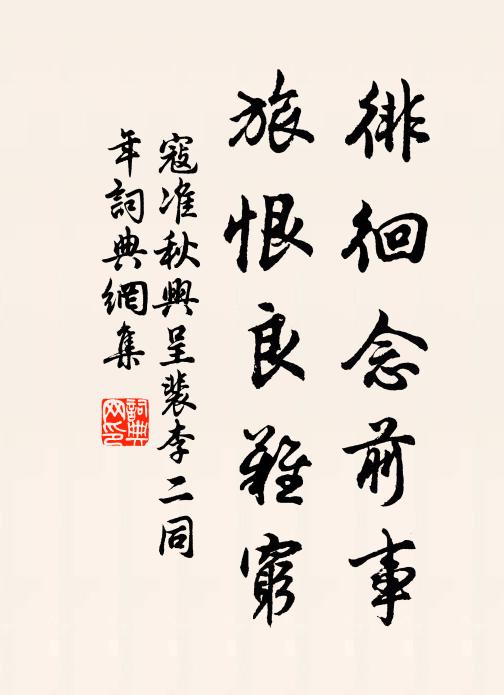 徘徊念前事
旅恨良難窮
寇准秋興呈裴李二同
年詞典網集
詞典
网印